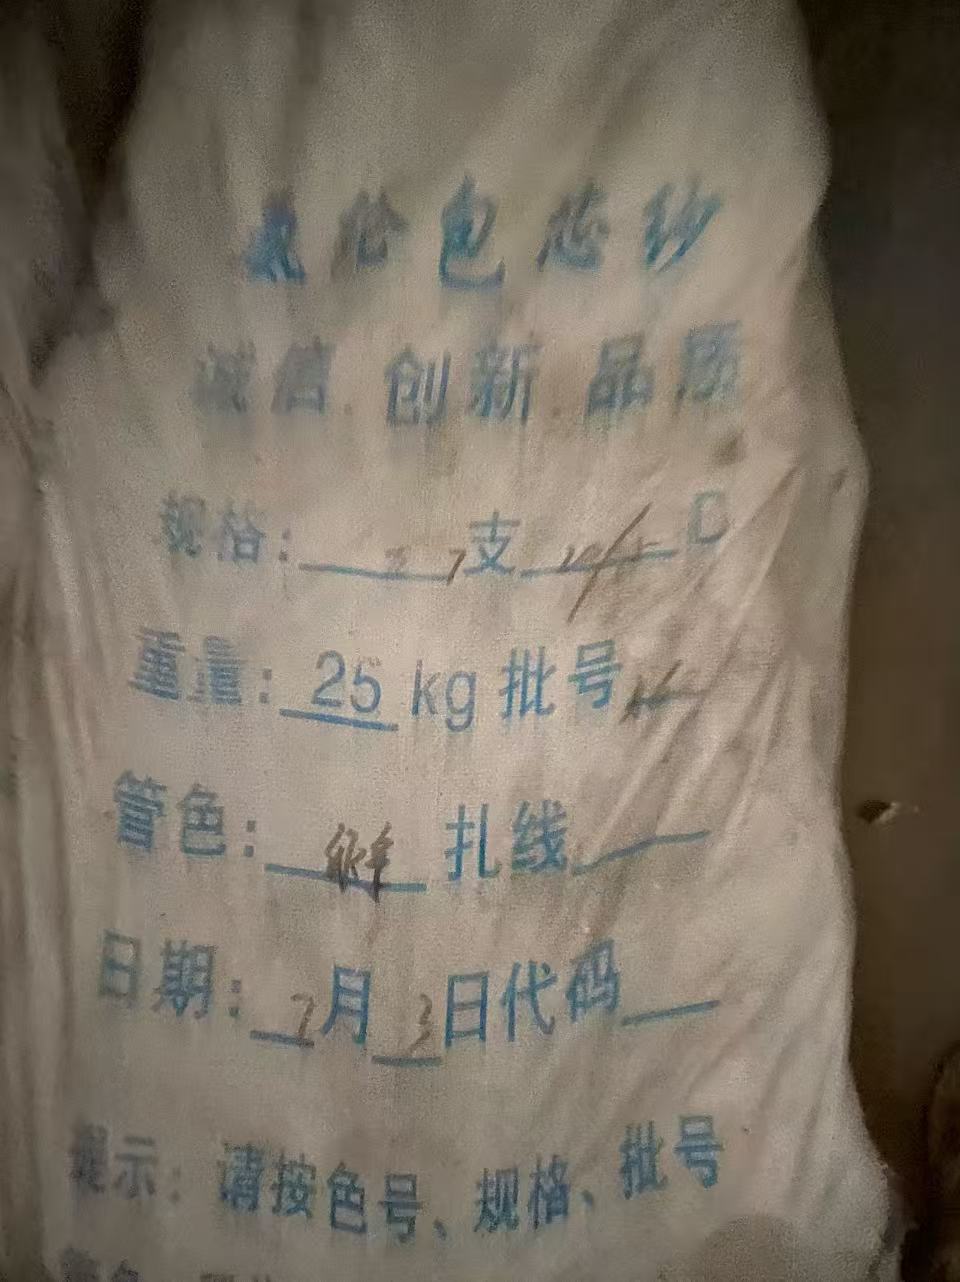 氨纶包芯纱
诚信 创新 品质
规格：支 D
重量：25 kg 批号
管色：扎线
日期：7月3日代码
提示：请按色号、规格、批号